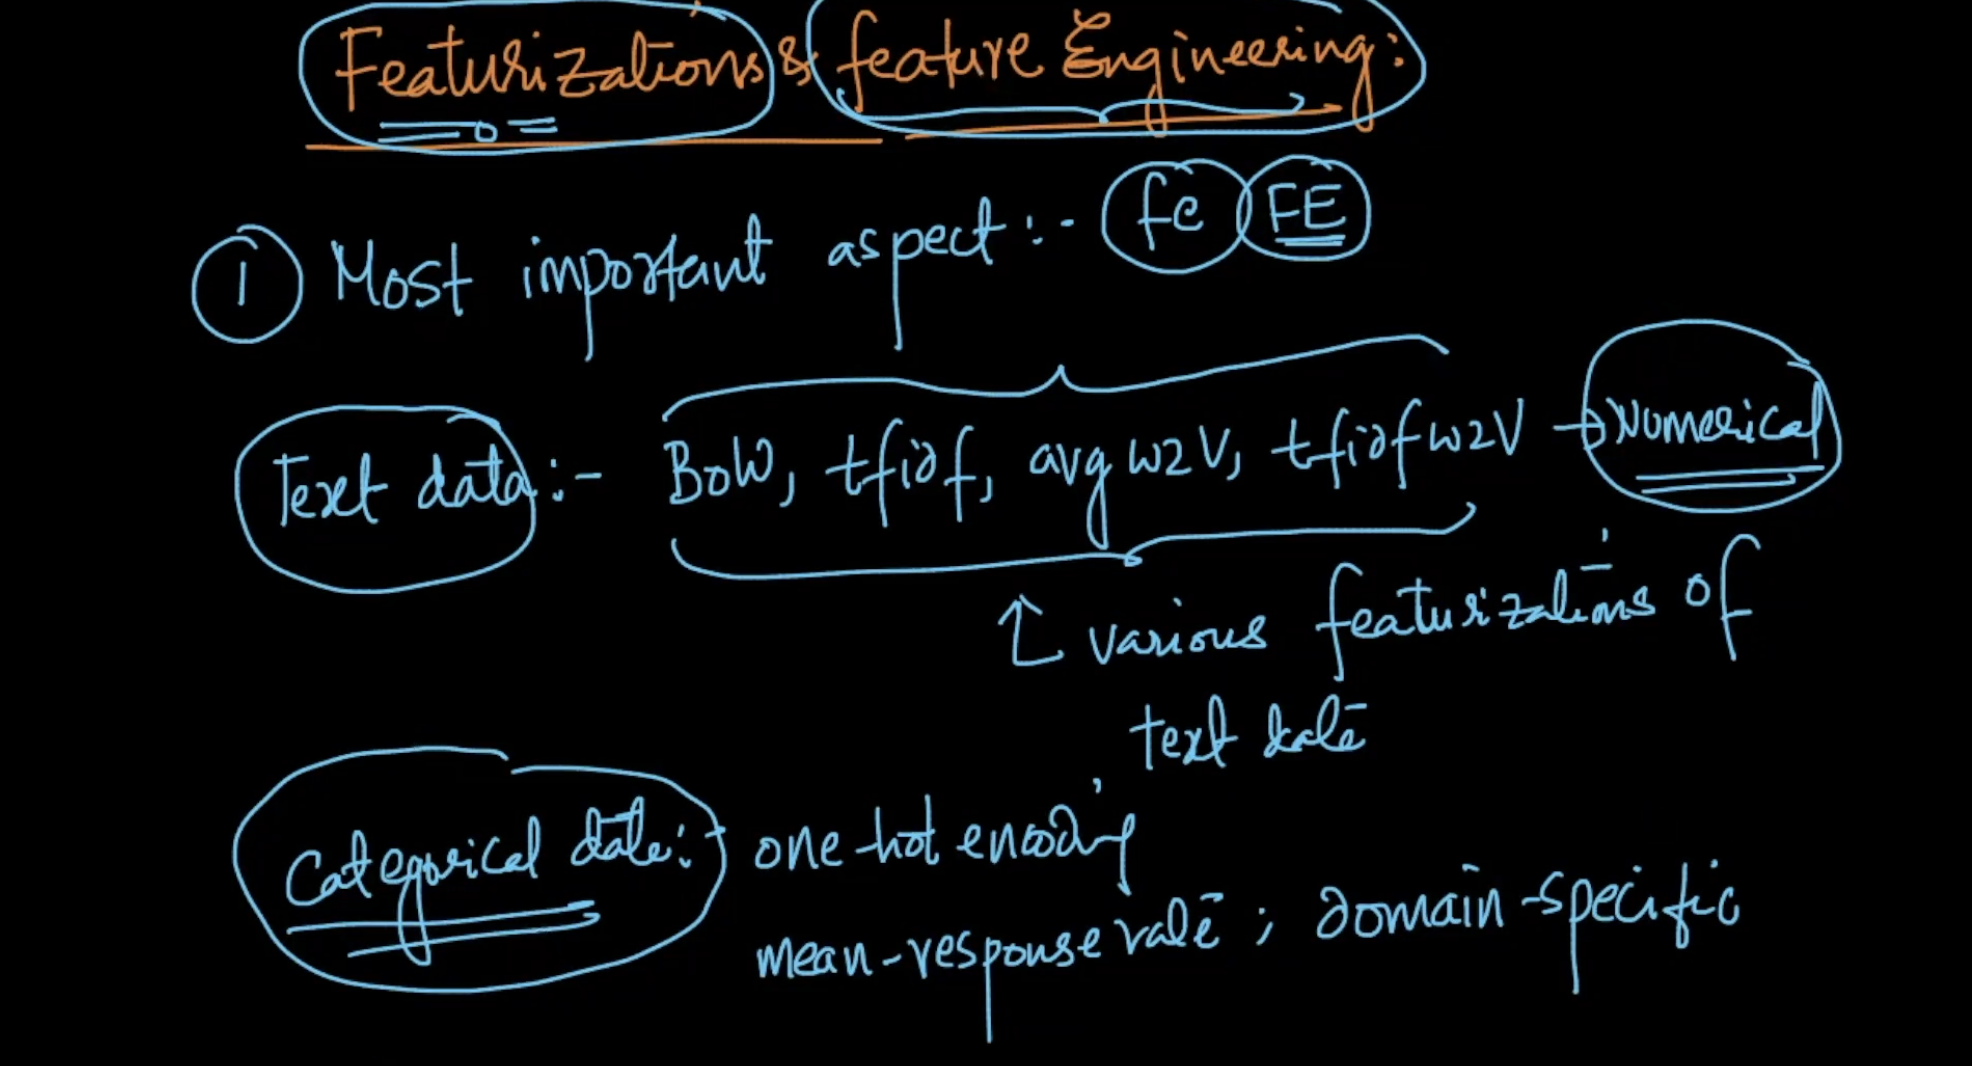 Featurizations & feature Engineering:
① Most important aspect :- fe FE
Text data :- BoW, tfidf, avg w2V, tfidf w2V → Numerical
↑ various featurizations of
text data
Categorical data :- one-hot encoding,
mean-response rate ; domain-specific